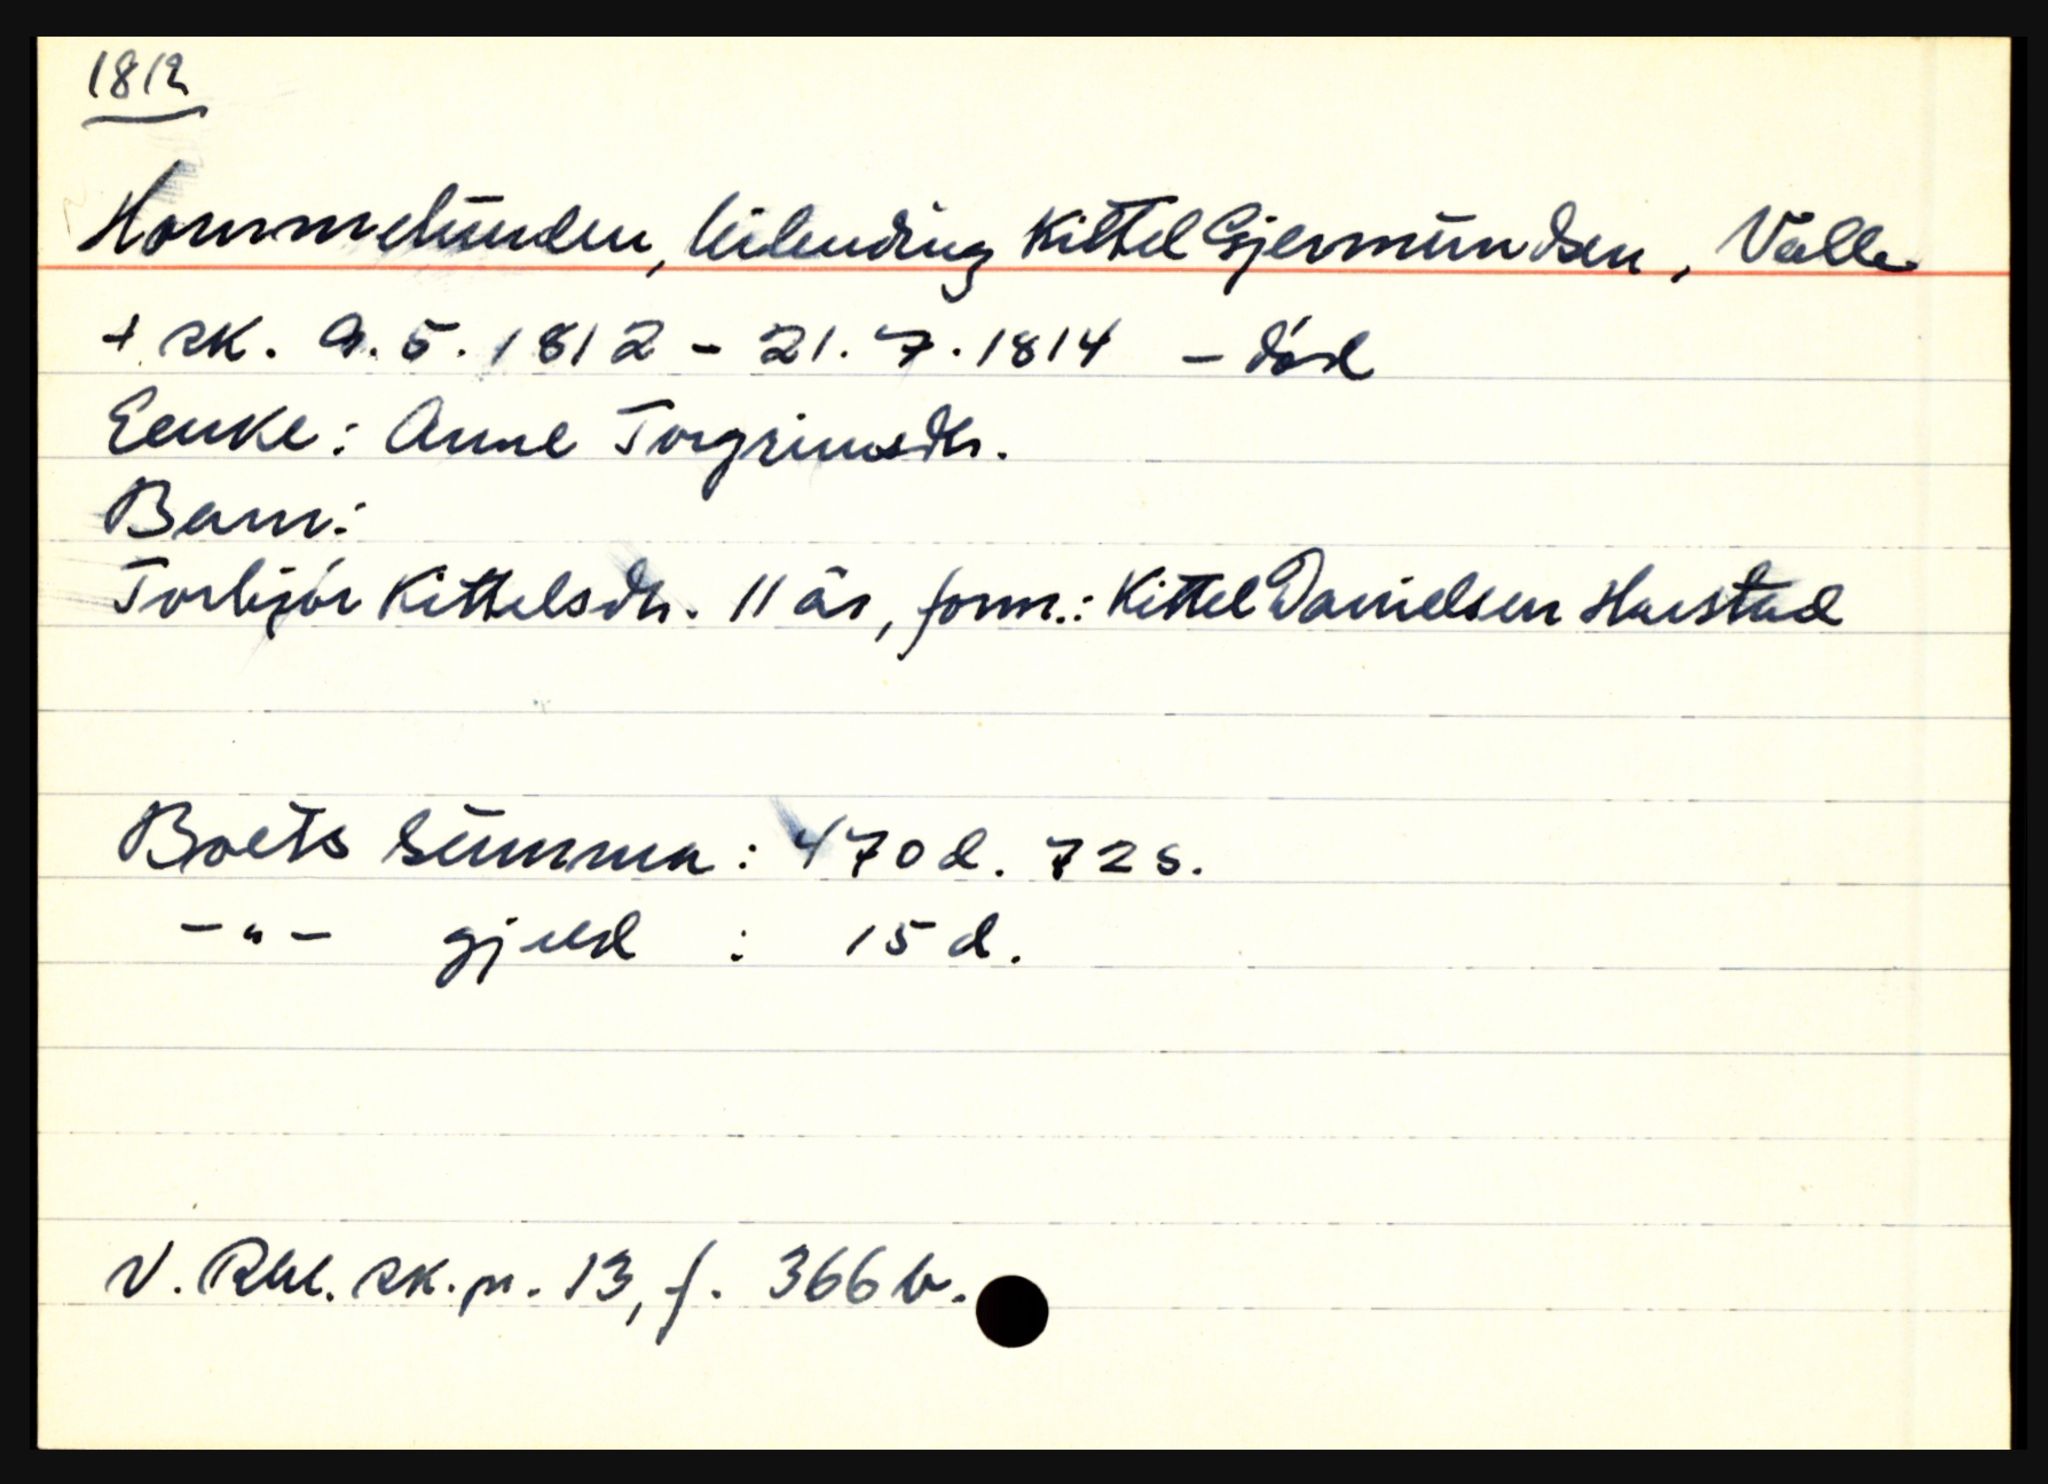 1812
Hommelunden, leilending Kittel Gjermundsen, Valle
+ sk. 9.5.1812 - 21.7.1814 - död
Eenke: Anne Torgrimsdtr.
Barn:
Torbjör Kittelsdtr. 11 år, form.: Kittel Danielsen Harstad
Boets summa: 470 d. 72 s.
-"- gjeld : 15 d.
V. Rbl. sk.pr. 13, f. 366 b.